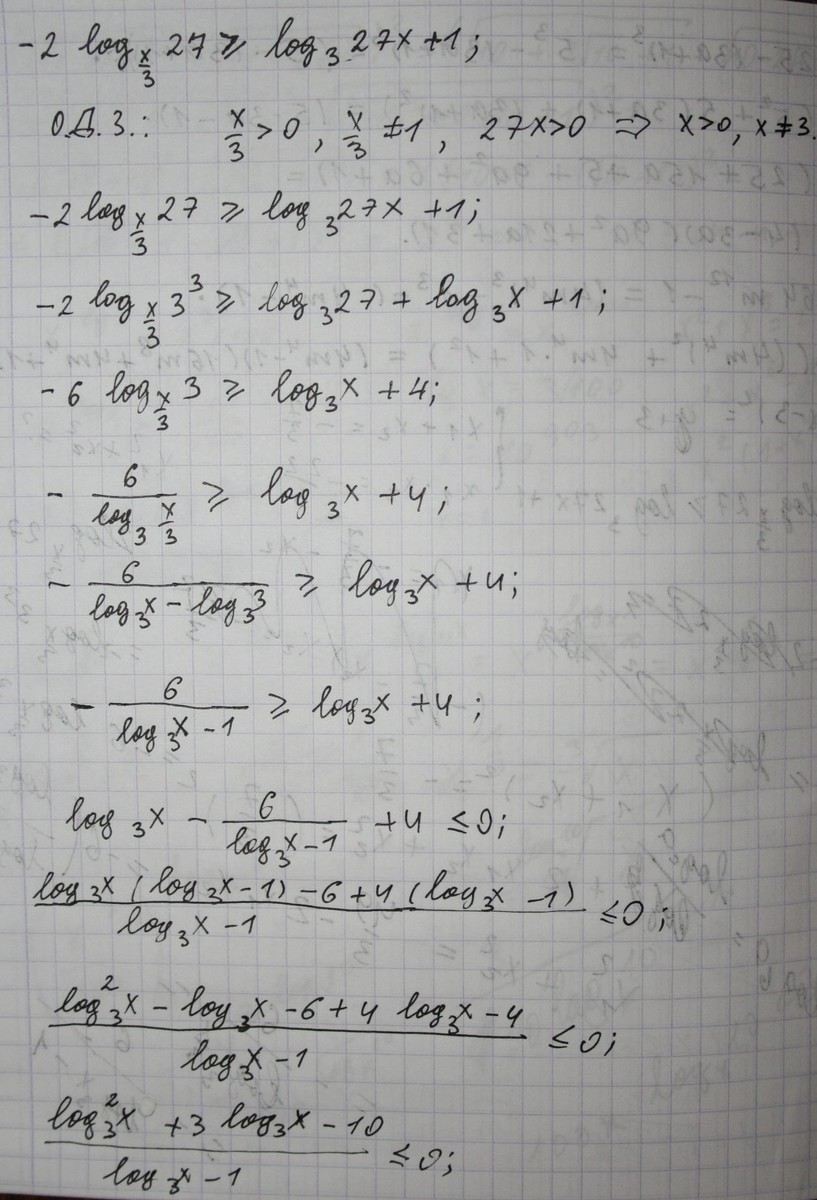 -2 log_{x/3} 27 ≥ log_3 27x + 1;
О.Д.З.: x/3 > 0, x/3 ≠ 1, 27x > 0 ⇒ x > 0, x ≠ 3.
-2 log_{x/3} 27 ≥ log_3 27x + 1;
-2 log_{x/3} 3^3 ≥ log_3 27 + log_3 x + 1;
-6 log_{x/3} 3 ≥ log_3 x + 4;
- 6/(log_3 x/3) ≥ log_3 x + 4;
- 6/(log_3 x - log_3 3) ≥ log_3 x + 4;
- 6/(log_3 x - 1) ≥ log_3 x + 4;
log_3 x - 6/(log_3 x - 1) + 4 ≤ 0;
(log_3 x (log_3 x - 1) - 6 + 4 (log_3 x - 1))/(log_3 x - 1) ≤ 0;
(log_3^2 x - log_3 x - 6 + 4 log_3 x - 4)/(log_3 x - 1) ≤ 0;
(log_3^2 x + 3 log_3 x - 10)/(log_3 x - 1) ≤ 0;